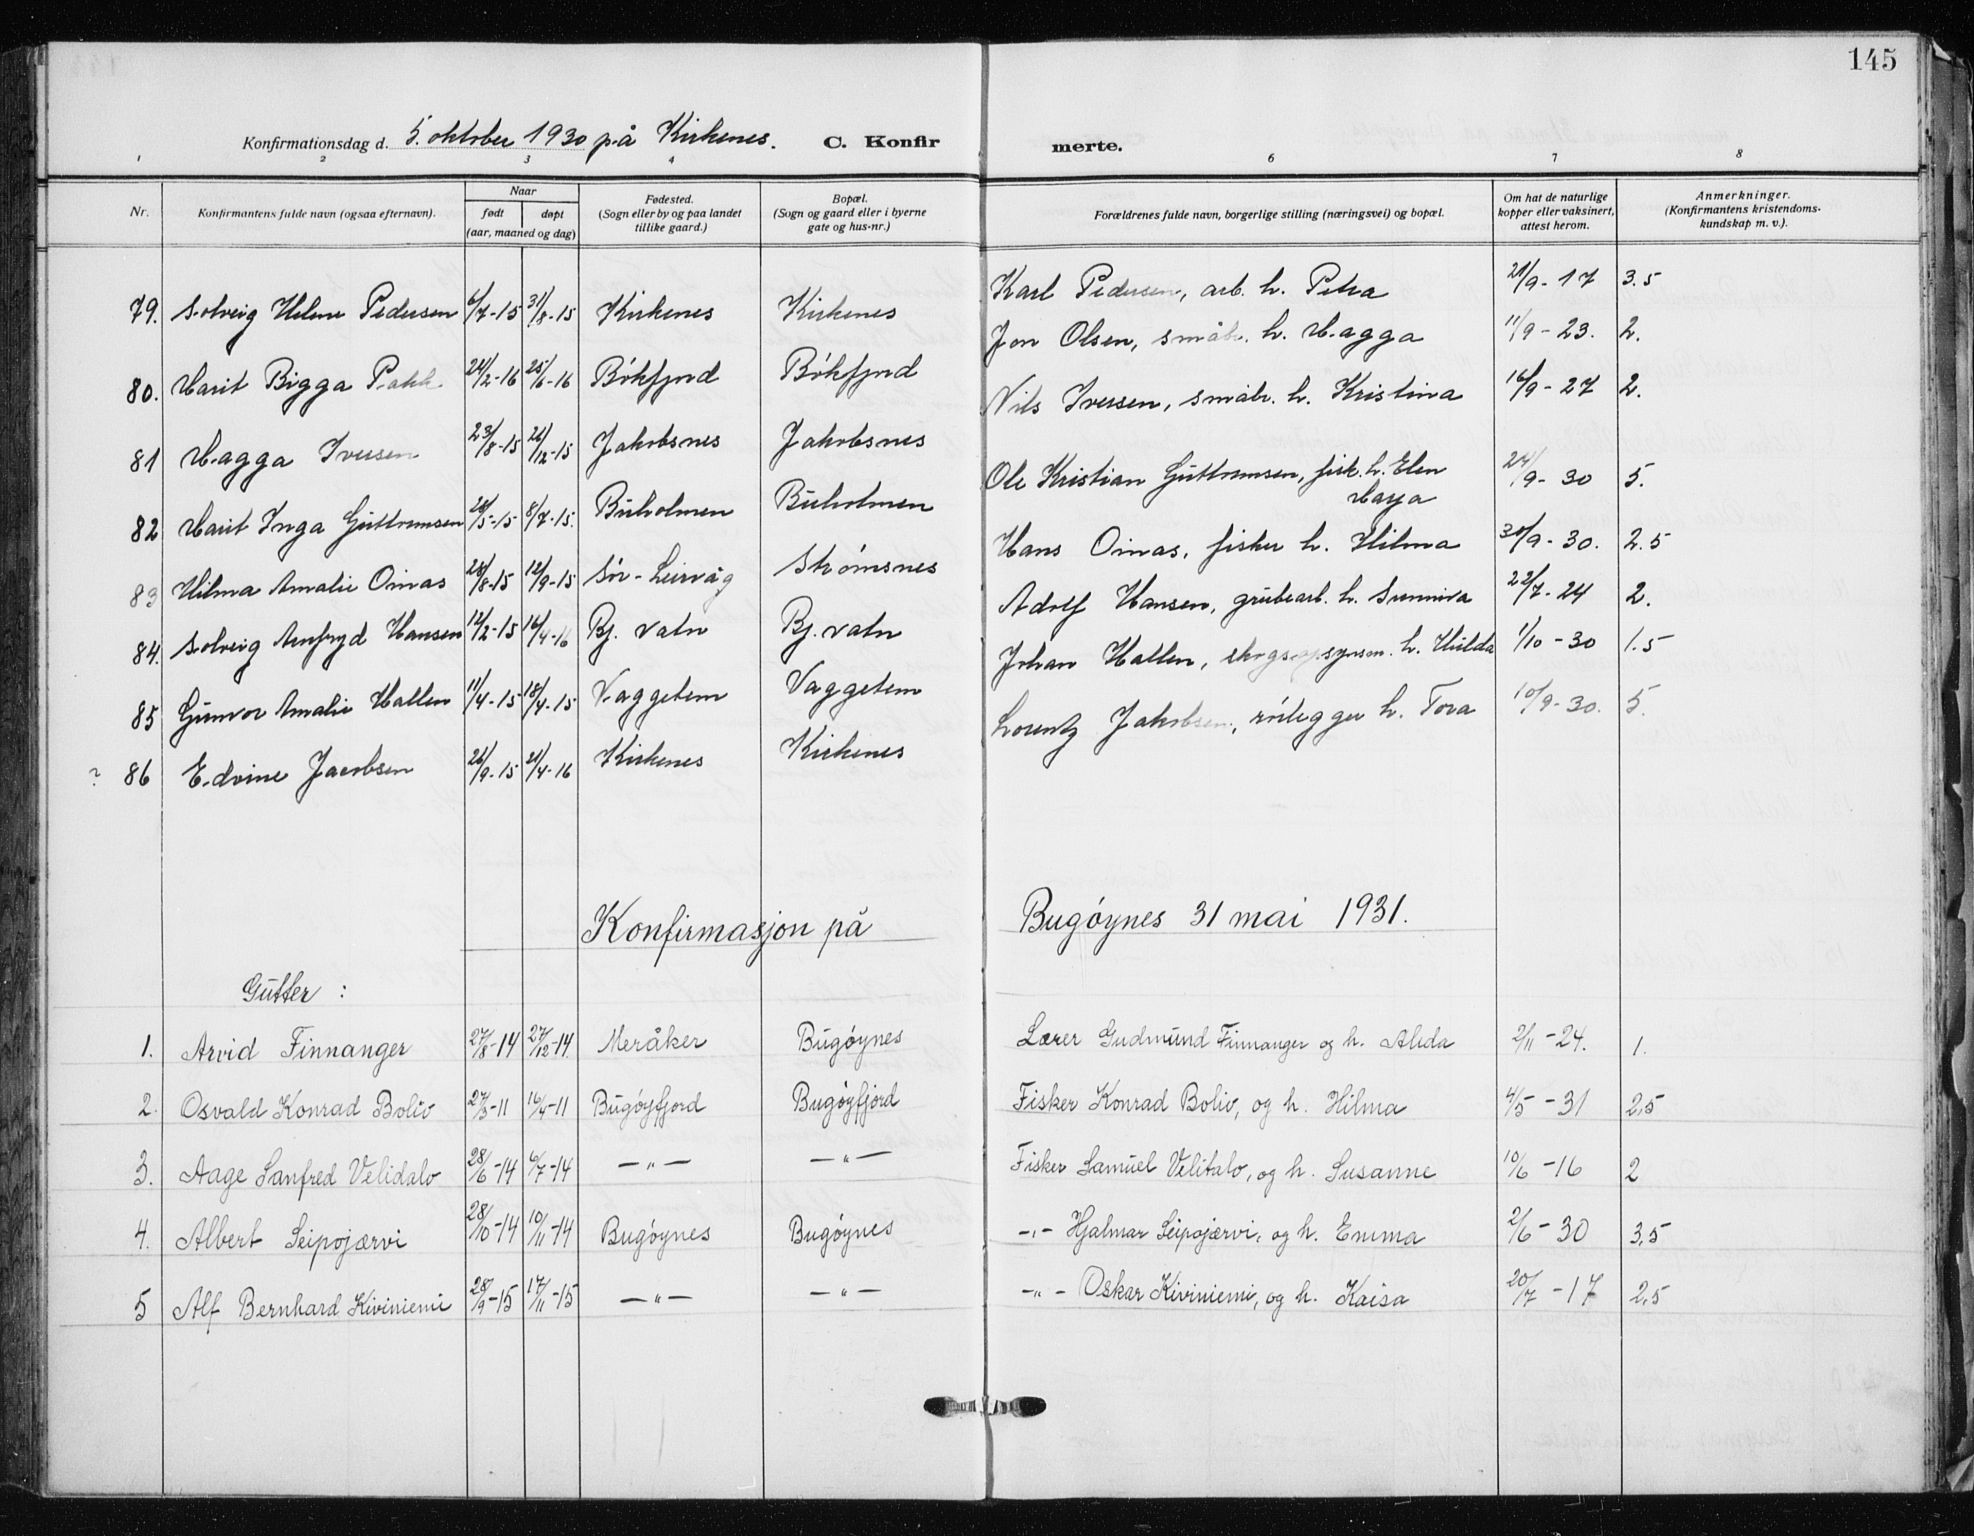 145
Konfirmationsdag d. 5. oktober 1930 på Kirkenes. C. Konfirmerte.
1 2 3 4 6 7 8
Nr. Konfirmantens fulde navn (ogsaa efternavn). Naar født døpt (aar, maaned og dag) Fødested. (Sogn eller by og paa landet tillike gaard.) Bopæl. (Sogn og gaard eller i byerne gate og hus-nr.) Forældrenes fulde navn, borgerlige stilling (næringsvei) og bopæl. Om hat de naturlige kopper eller vaksinert, attest herom. Anmerkninger. (Konfirmantens kristendomskundskap m. v.).
79. Solveig Helene Pedersen 6/7-15 31/8-15 Kirkenes Kirkenes Karl Pedersen, arb. h. Petra 21/9-17 3.5
80. Marit Bigga 24/2-16 25/6-16 Bókfjord Bókfjord Jon Olsen, småbr. h. Magga 11/9-23. 2.
81 Magga Iversen 23/8-15 26/12-15 Jakobsnes Jakobsnes Nils Iversen, småbr. h. Kristina 16/9-27 2.
82 Marit Inga Guttormsen 28/5-15 8/7-15. Buholmen Buholmen Ole Kristian Guttormsen, fisk. h. Elen Marja 24/9-30 5.
83 Hilma Amalie Oinas 28/8-15 12/9-15 Sör-Leirvåg Strómsnes Hans Oinas, fisker h. Hilma 30/9-30. 2.5
84. Solveig Arnfryd Hansen 12/2-15 16/4-16 Bj. vatn Bj. vatn Adolf Hansen, grubearb. h. Sunniva 22/7-24 2.
85 Gunvor Amalie Hallen 11/4-15 18/4-15 Vaggetem Vaggetem Johan Hallen, skogsopsynsm. h. Hilda 1/10-30 1.5
? 86 Edvine Jacobsen 26/9-15 21/4-16 Kirkenes Kirkenes Lorentz Jakobsen, rörlegger h. Tora 10/9-30. 5.
Konfirmasjon på Bugóynes 31 mai 1931.
Gutter :
1. Arvid Finnanger 27/8-14 27/12-14 Meråker Bugóynes Lærer Gudmund Finnanger og h. Alida 2/11-24. 1.
2. Osvald Konrad Boliv 27/3-11 16/4-11 Bugóyfjord Bugóyfjord Fisker Konrad Boliv, og h. Hilma 4/5-31 2,5
3. Aage Sanfred Velidalo 28/6-14 6/7-14 —"— —"— Fisker Samuel Velitalo, og h. Susanne 10/6-16 2
4. Albert Seipojærvi 28/10-14 10/11-14 Bugóynes Bugóynes -"- Hjalmar Seipojærvi, og h. Emma 2/6-30 3,5
5 Alf Bernhard Kiviniemi 28/9-15 17/11-15 —"— —"— -"- Oskar Kiviniemi, og h. Kaisa 20/7-17 2,5